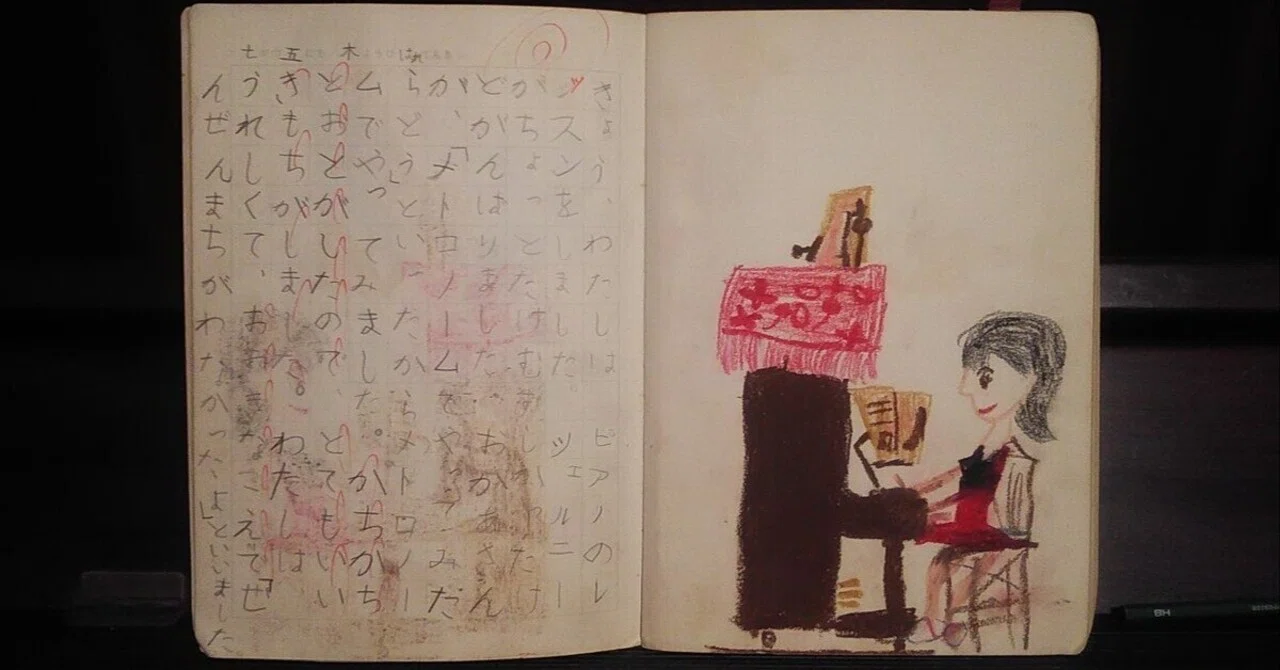 七 五 木 はれ
きょう、わたしはピアノのレ
ッスンをしました。ツェルニー
がちょっとだけむずしかったけ
どがんばりました。おかあさん
が、「メトロノームをやってみた
らどう」といったからメトロノー
ムでやってみました。かちかち
とおとがしたので、とてもいい
きもちがしました。わたしは
うれしくて、おおきなこえで「ぜ
んぜんまちがわなかったよ」といいました